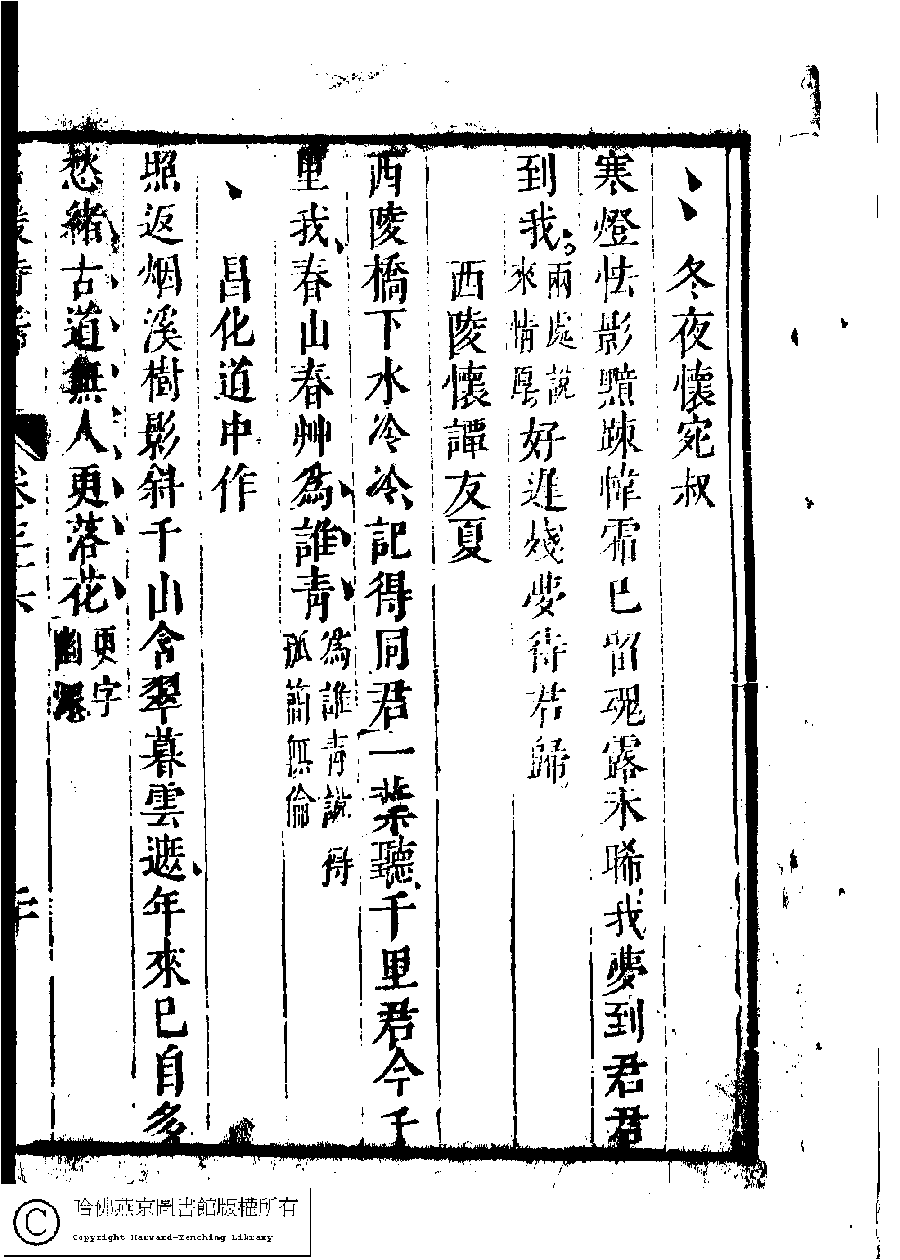 冬夜懷宛叔
寒燈怯影黯疎幃霜已留魂露未晞我夢到君君
到我兩處說來情厚好進殘夢待君歸
西陵懷譚友夏
西陵橋下水泠泠記得同君一葉聽千里君今千
里我春山春艸為誰青為誰青說得孤蕭無倫
昌化道中作
照返烟溪樹影斜千山含翠暮雲遮年來已自多
愁緒古道無人更落花更字
卷三十六
哈佛燕京圖書館版權所有
Copyright Harvard-Yenching Library